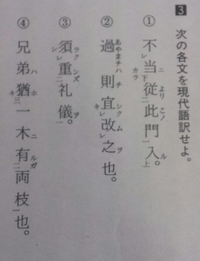 3 次の各文を現代語訳せよ。
① 不当従此門入。
② 過則宜改之也。
③ 須重礼儀。
④ 兄弟猶一木有両枝也。